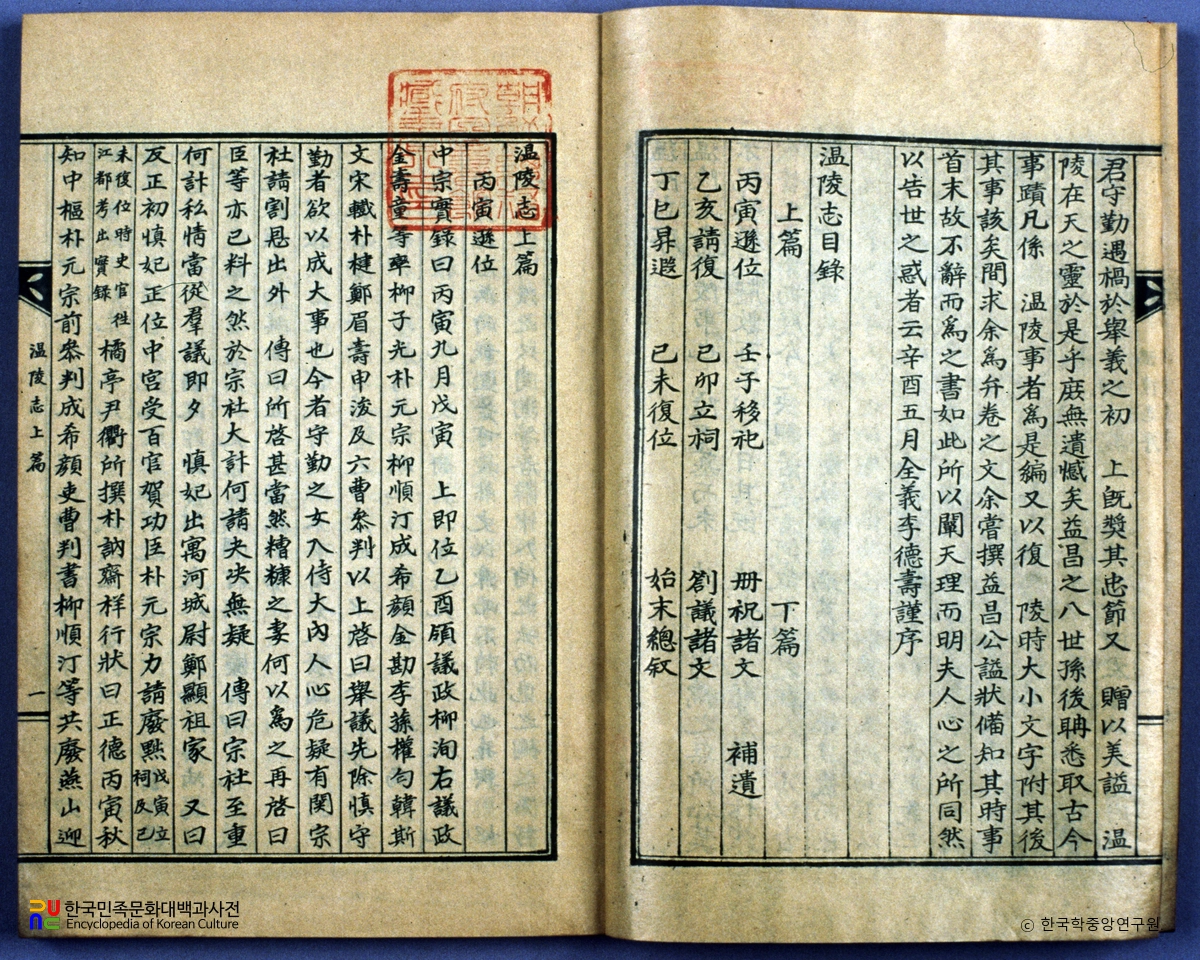 君守勤遇禍於擧義之初 上旣奬其忠節又 贈以美謚 温
陵在天之靈於是乎庶無遺憾矣益昌之八世孫後聃悉取古今
事蹟凡係 温陵事者爲是編又以復 陵時大小文字附其後
其事該矣間求余爲弁卷之文余嘗撰益昌公謚狀備知其時事
首末故不辭而爲之書如此所以闡天理而明夫人心之所同然
以告世之惑者云辛酉五月全義李德壽謹序
温陵志目錄
上篇 下篇
丙寅遜位 壬子移祀 册祝諸文 補遺
乙亥請復 己卯立祠 劄議諸文
丁巳昇遐 己未復位 始末總叙
温陵志上篇
丙寅遜位
中宗實錄曰丙寅九月戊寅 上即位乙酉領議政柳洵右議政
金壽童等率柳子光朴元宗柳順汀成希顔金勘李蓀權勻韓斯
文宋軼朴楗鄭眉壽申浚及六曹叅判以上啓曰擧議先除愼守
勤者欲以成大事也今者守勤之女入侍大內人心危疑有関宗
社請割恩出外 傳曰所啓甚當然糟糠之妻何以爲之再啓曰
臣等亦已料之然於宗社大計何請夬决無疑 傳曰宗社至重
何計私情當從羣議即夕 愼妃出寓河城尉鄭顯祖家 又曰
反正初愼妃正位中宮受百官賀功臣朴元宗力請廢黜戊寅立祠及己
未復位時史官徃江都考出實錄 橘亭尹衢所撰朴訥齋祥行狀曰正德丙寅秋
知中樞朴元宗前叅判成希顔吏曹判書柳順汀等共廢燕山迎
温陵志上篇
一
한국민족문화대백과사전
Encyclopedia of Korean Culture
ⓒ 한국학중앙연구원